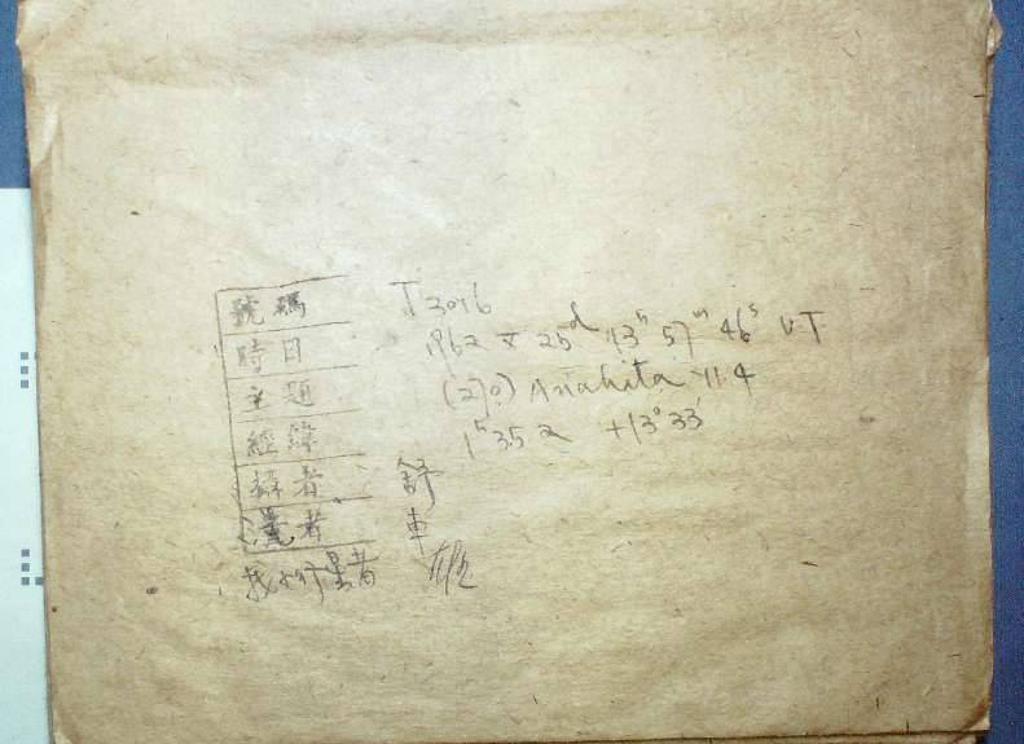 號碼 J3016
時日 1962 X 25ᵈ 13ʰ 57ᵐ 46ˢ U.T
主題 (270) Anahita 11.4
經緯 1ʰ 35 2 +13° 33'
攝者 舒
者 車
找小行星者